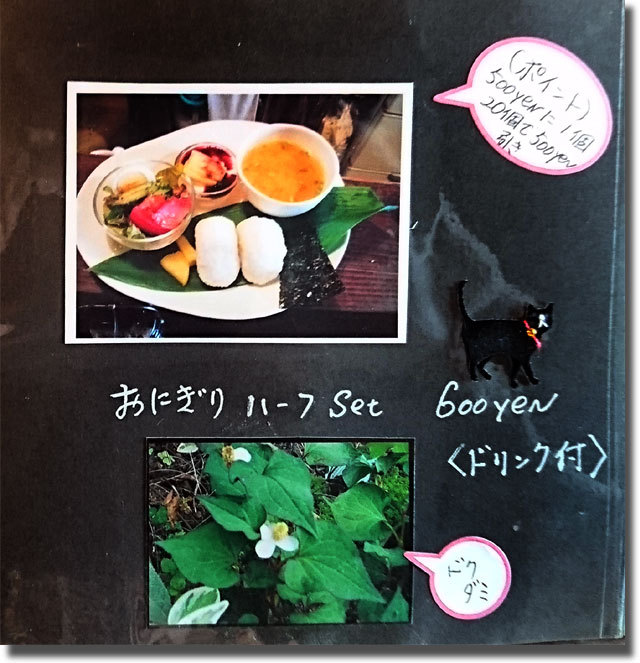 (ポイント)
500yenに1個
20個で500yen
引き
おにぎりハーフSet 600yen
〈ドリンク付〉
ドク
ダミ